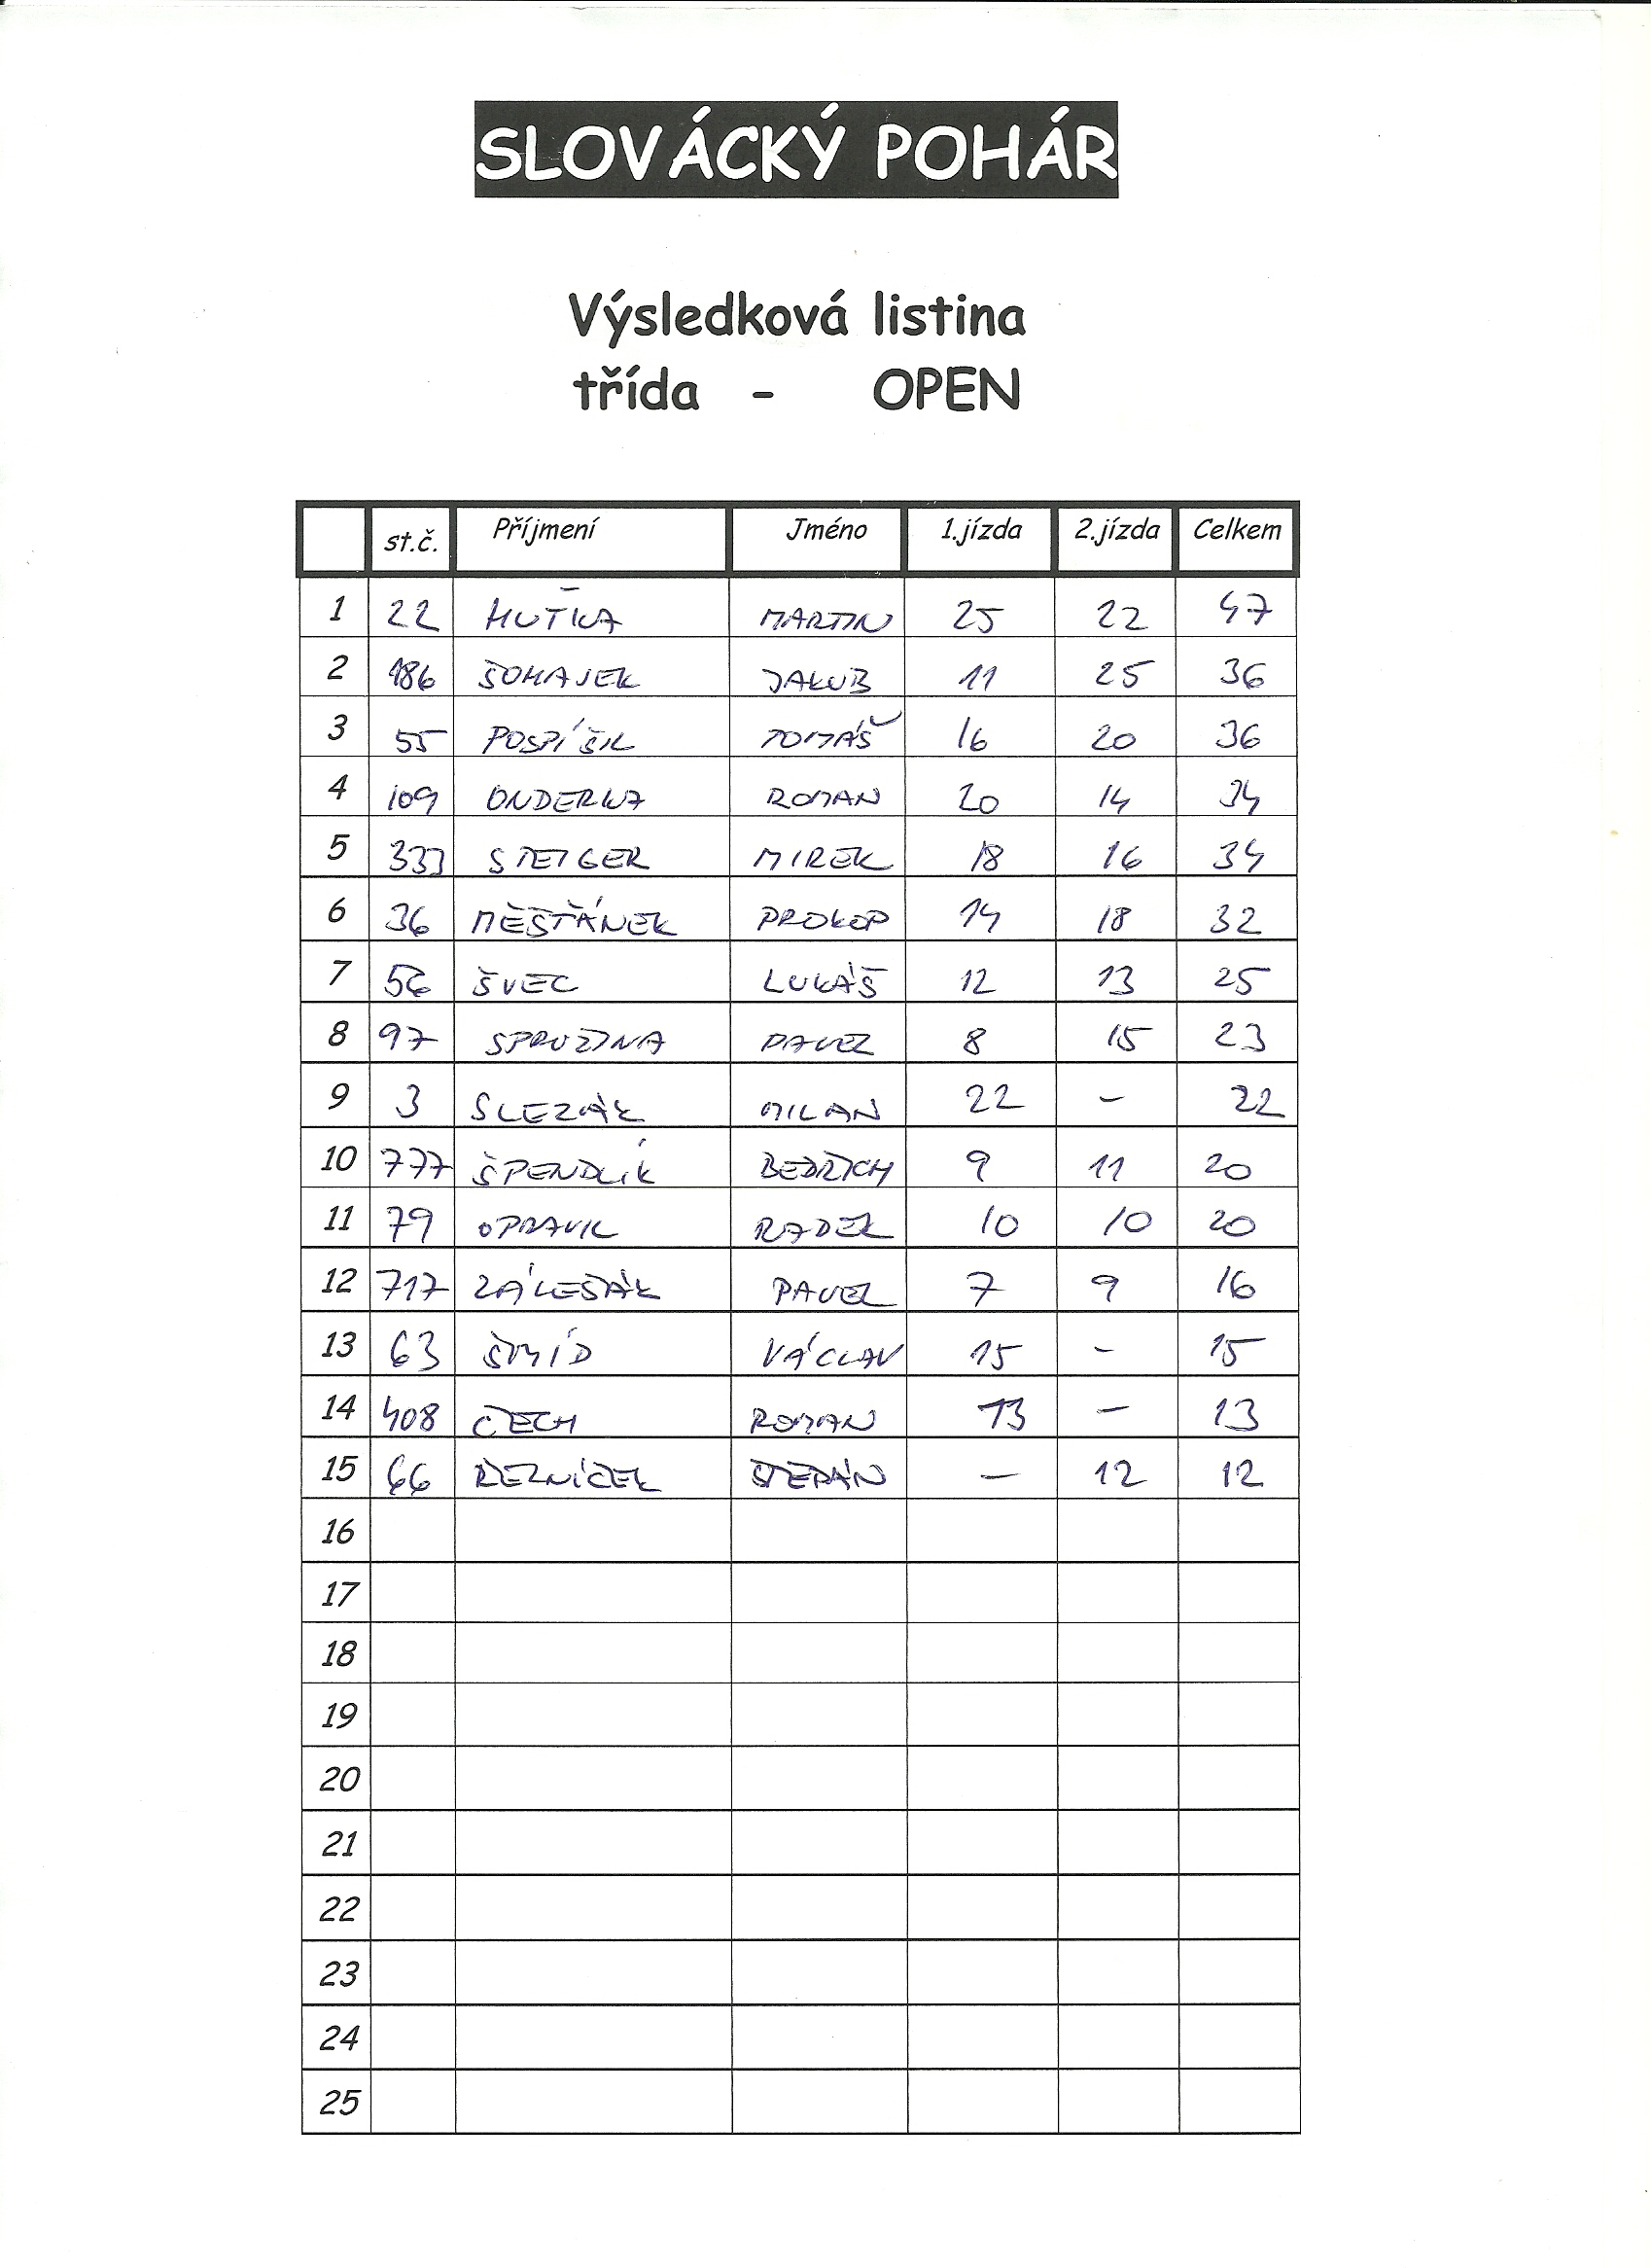 SLOVÁCKÝ POHÁR
Výsledková listina
třída - OPEN
st.č. Příjmení Jméno 1.jízda 2.jízda Celkem
1 22 HUŤKA MARTIN 25 22 47
2 186 JAKUB 11 25 36
3 55 POSPÍŠIL TOMÁŠ 16 20 36
4 109 ONDERKA ROMAN 20 14 34
5 333 STEIGER MIREK 18 16 34
6 36 MĚŠŤÁNEK PROKOP 14 18 32
7 56 ŠVEC LUKÁŠ 12 13 25
8 97 SPRUŽINA PAVEL 8 15 23
9 3 SLEZÁK MILAN 22 - 22
10 777 ŠPENDLÍK BEDŘICH 9 11 20
11 79 OPRAVIL RADEK 10 10 20
12 717 ZÁLEŠÁK PAVEL 7 9 16
13 63 ŠMÍD VÁCLAV 15 - 15
14 408 ČECH ROMAN 13 - 13
15 66 ŘEZNÍČEK ŠTĚPÁN - 12 12
16
17
18
19
20
21
22
23
24
25